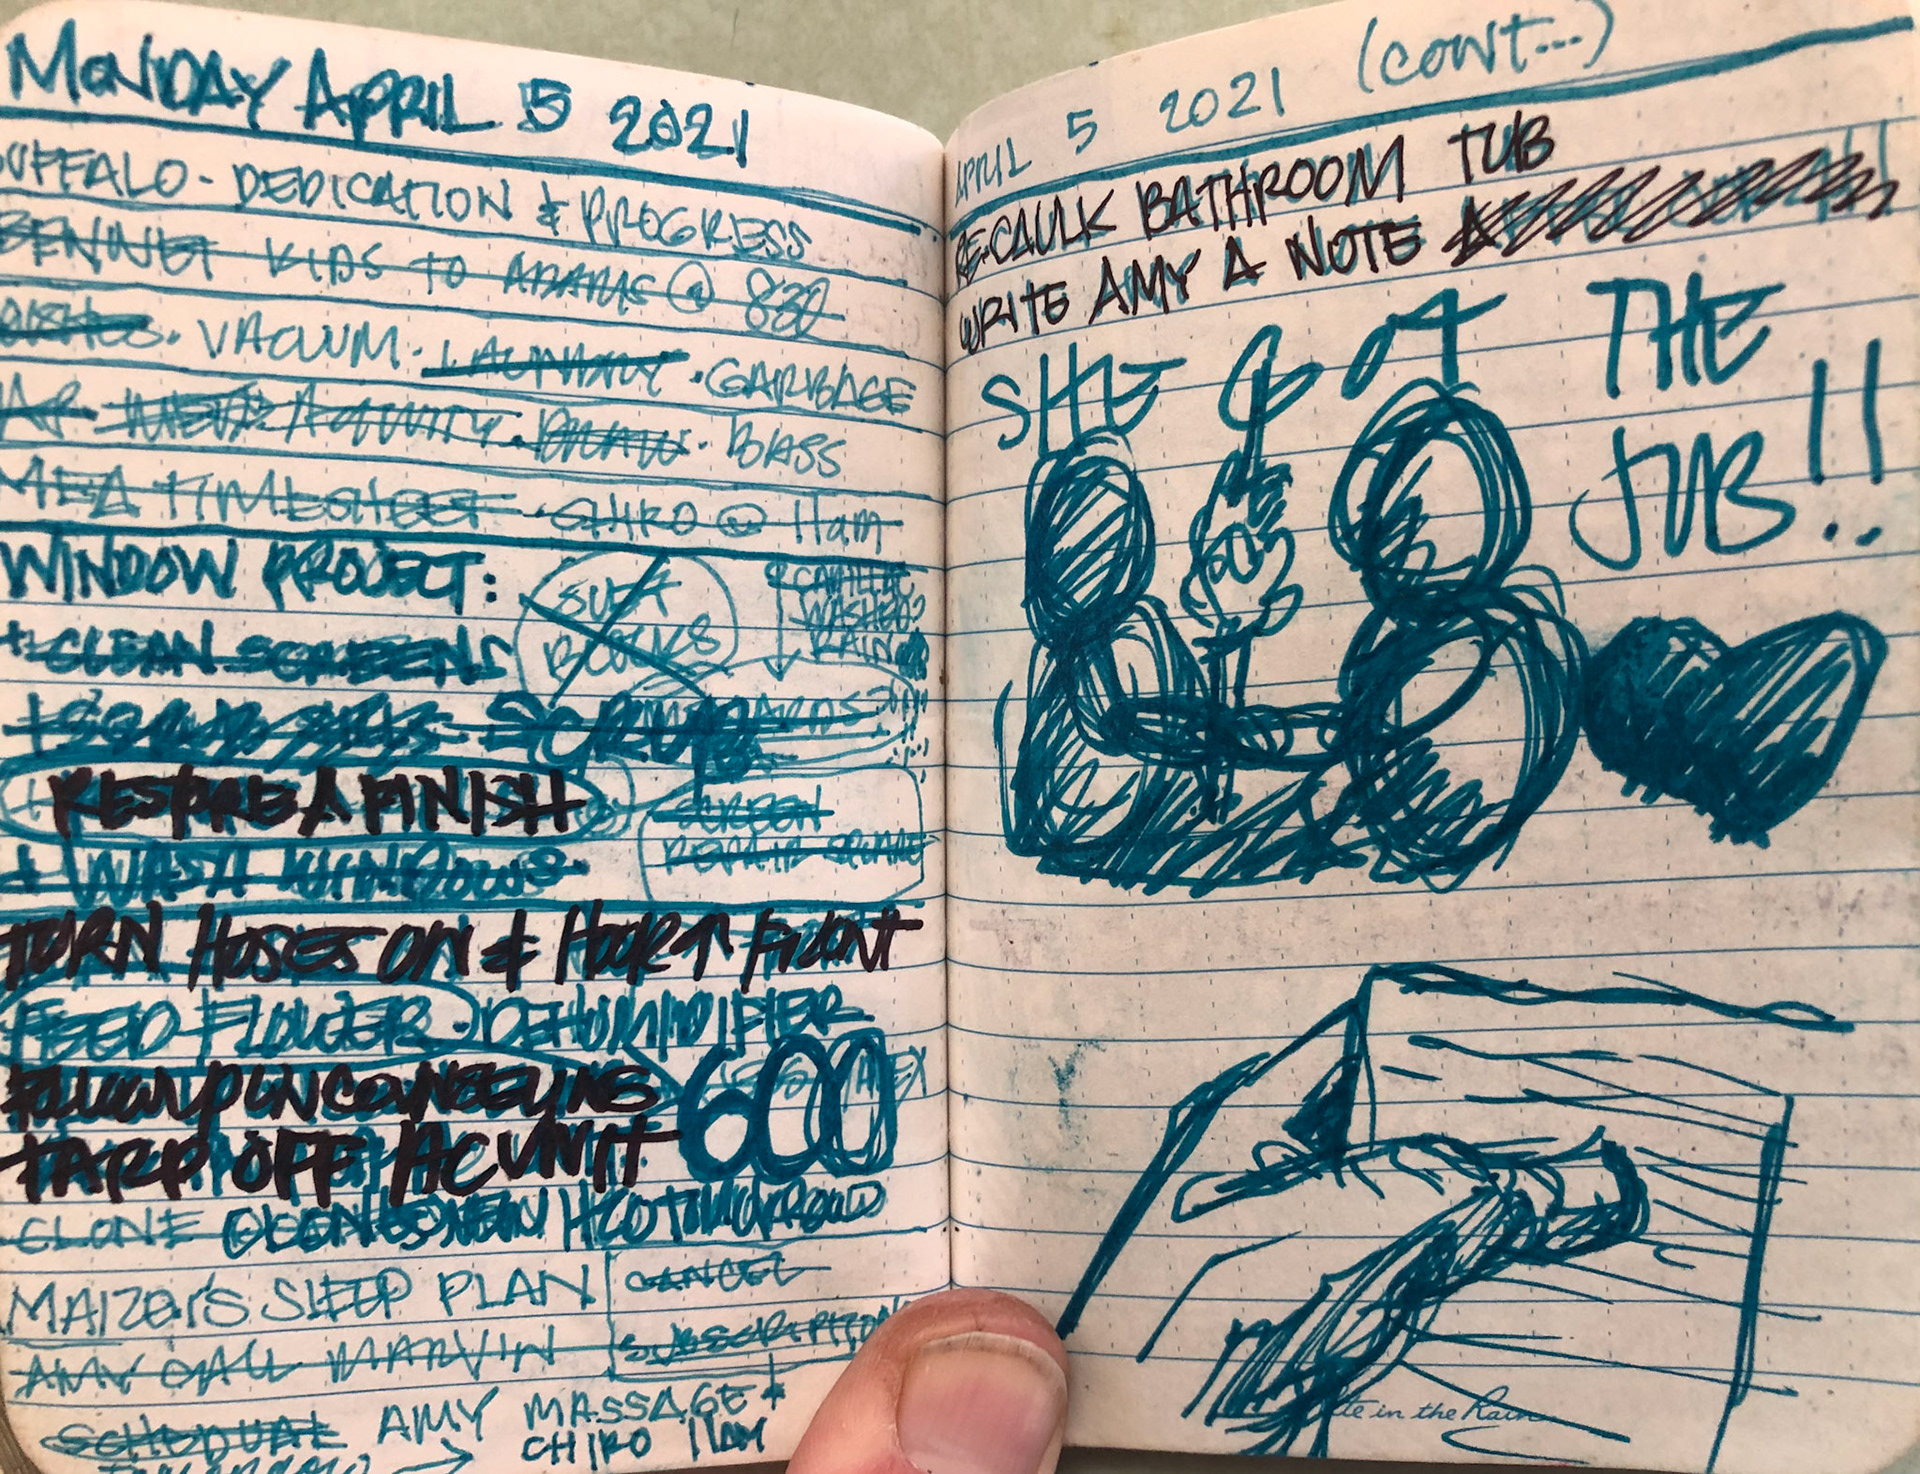 MONDAY APRIL 5 2021
UFFALO - DEDICATION & PROGRESS
BENNET KIDS TO ADAMS @ 830
DISHES · VACUUM · LAUNDRY · GARBAGE
ACTIVITY · DRAW · BASS
MEA TIMESHEET · CHIRO @ 11am
WINDOW PROJECT:
SUFA
BLOCKS
CADILLAC
WASHED?
RAIN
+ CLEAN SCREENS
+ SCRUB
RESTORE A FINISH
SCREEN
REPAIR
+ WASH WINDOWS
TURN HOSES ON & HOOK ↑ FRONT
FEED FLOWER · DEHUMIDIFIER
FOLLOW UP ON COUNSELING
600
TARP OFF AC UNIT
CLONE
MAIZEY'S SLEEP PLAN
CANCEL
SUBSCRIPTION
AMY CALL MARVIN
SCHEDUAL AMY MASSAGE +
TOMORROW → CHIRO 11AM
APRIL 5 2021 (CONT...)
RE-CAULK BATHROOM TUB
WRITE AMY A NOTE
SHE GOT THE
JOB!!
te in the Rain